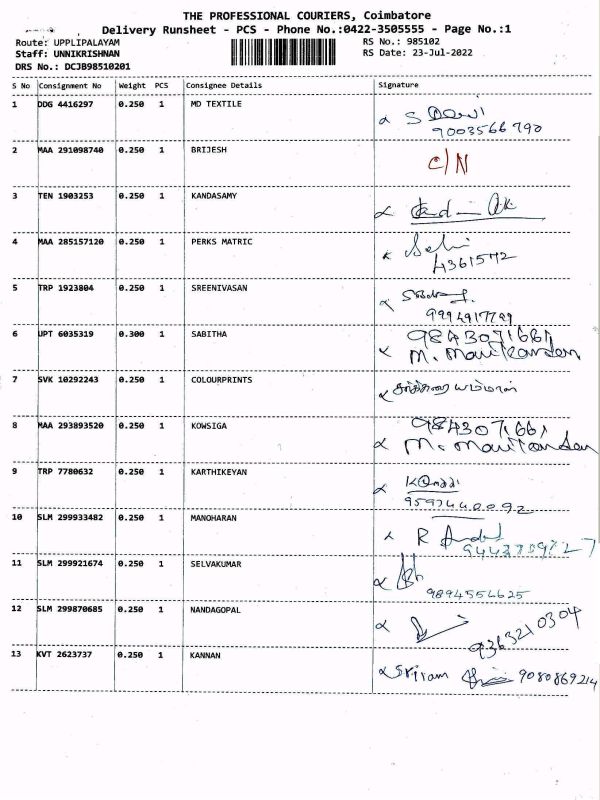 THE PROFESSIONAL COURIERS, Coimbatore
Delivery Runsheet - PCS - Phone No.:0422-3505555 - Page No.:1
Route: UPPLIPALAYAM RS No.: 985102
Staff: UNNIKRISHNAN RS Date: 23-Jul-2022
DRS No.: DCJB98510201
S No Consignment No Weight PCS Consignee Details Signature
1 DDG 4416297 0.250 1 MD TEXTILE
9003566790
2 MAA 291098740 0.250 1 BRIJESH C/N
3 TEN 1903253 0.250 1 KANDASAMY
4 MAA 285157120 0.250 1 PERKS MATRIC
4361572
5 TRP 1923804 0.250 1 SREENIVASAN
9994917799
6 UPT 6035319 0.300 1 SABITHA 9843071661
M. Manikandan
7 SVK 10292243 0.250 1 COLOURPRINTS
8 MAA 293893520 0.250 1 KOWSIGA 9843071661
M. Manikandan
9 TRP 7780632 0.250 1 KARTHIKEYAN
10 SLM 299933482 0.250 1 MANOHARAN R
11 SLM 299921674 0.250 1 SELVAKUMAR
9894554625
12 SLM 299870685 0.250 1 NANDAGOPAL
9363210304
13 KVT 2623737 0.250 1 KANNAN Sriram 9080869214